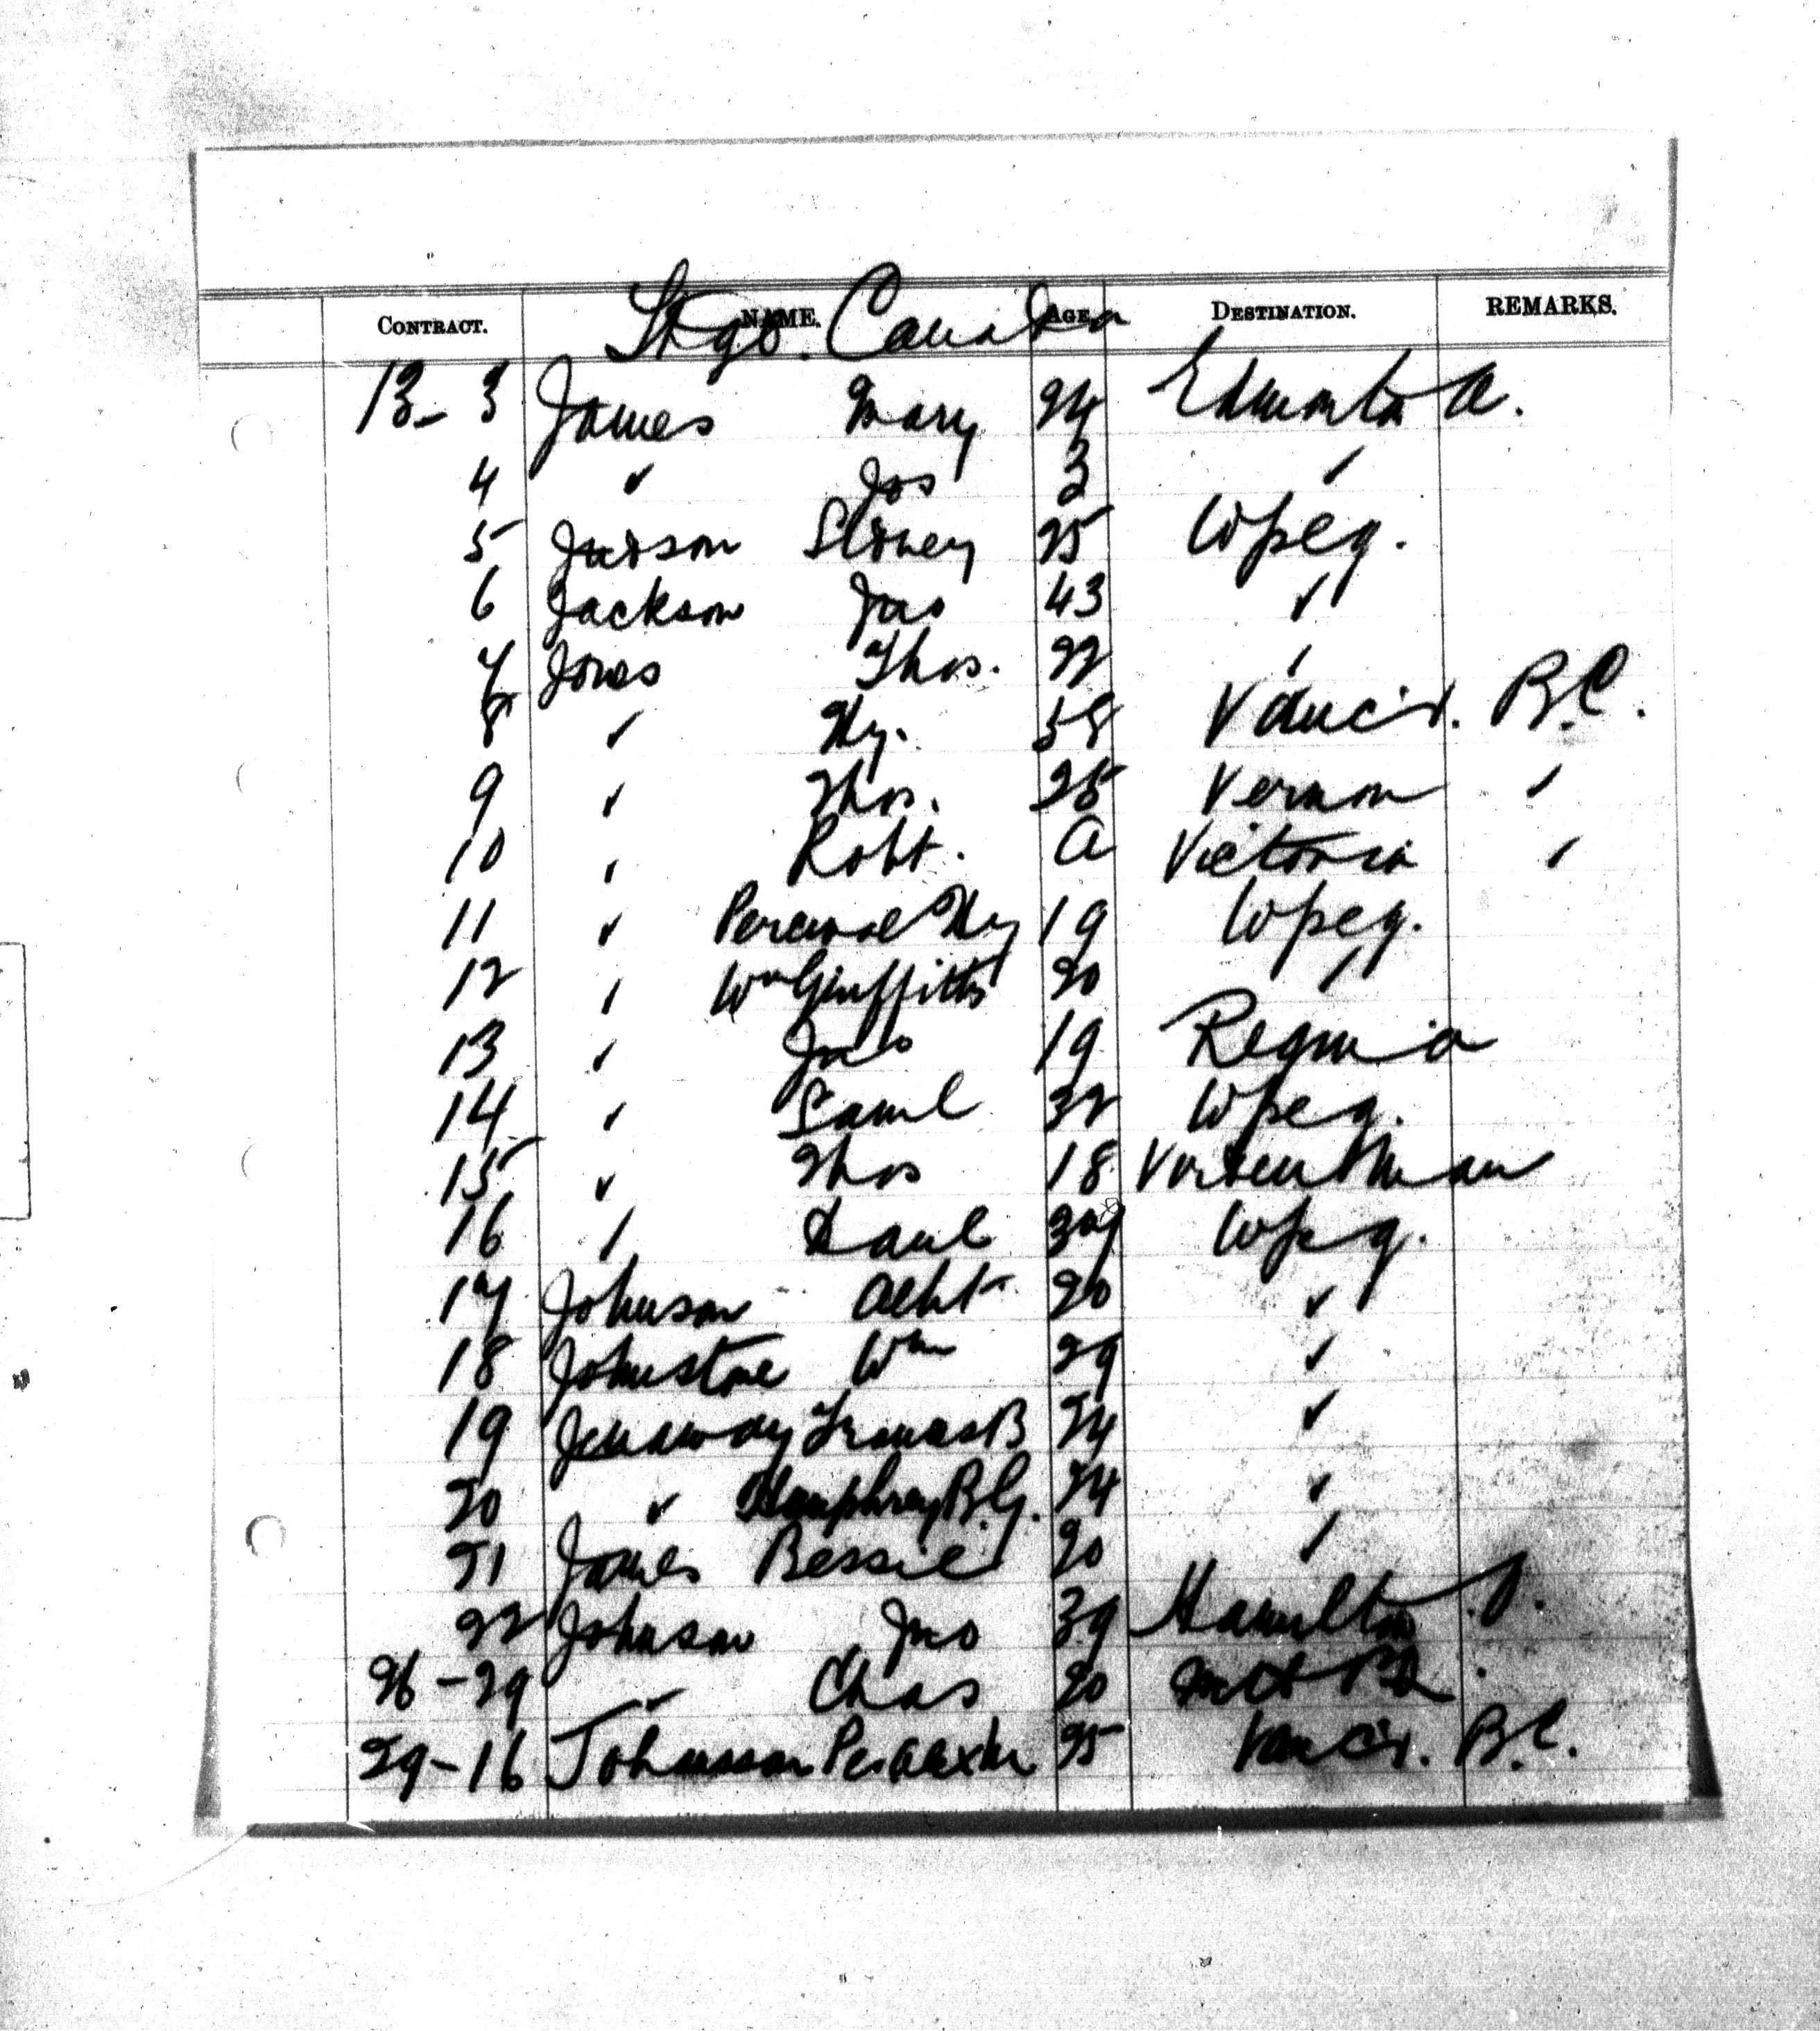 Stge. Canada
CONTRACT. NAME. AGE DESTINATION. REMARKS.
13-3 James Mary 24 Edmonton A.
4 " Jos 3 "
5 Judson Sidney 25 Wpeg.
6 Jackson Jno 43 "
7 Jones Thos. 22 "
8 " Hy. 58 Vancvr. B.C.
9 " Thos. 25 Vernon "
10 " Robt. A Victoria "
11 " Percival Hy 19 Wpeg.
12 " Wm Griffiths 20 "
13 " Jno 19 Regina
14 " Saml 32 Wpeg.
15 " Thos 18 Virden Man
16 " Danl 37 Wpeg.
17 Johnson Albt 20 "
18 Johnstone Wm 29 "
19 Jenaway Frances B 24 "
20 " Humphrey B.G. 24 "
21 James Bessie 20 "
22 Johnson Jno 39 Hamilton O.
26-29 " Chas 20
29-16 Johansson Per 25 Vancvr. B.C.